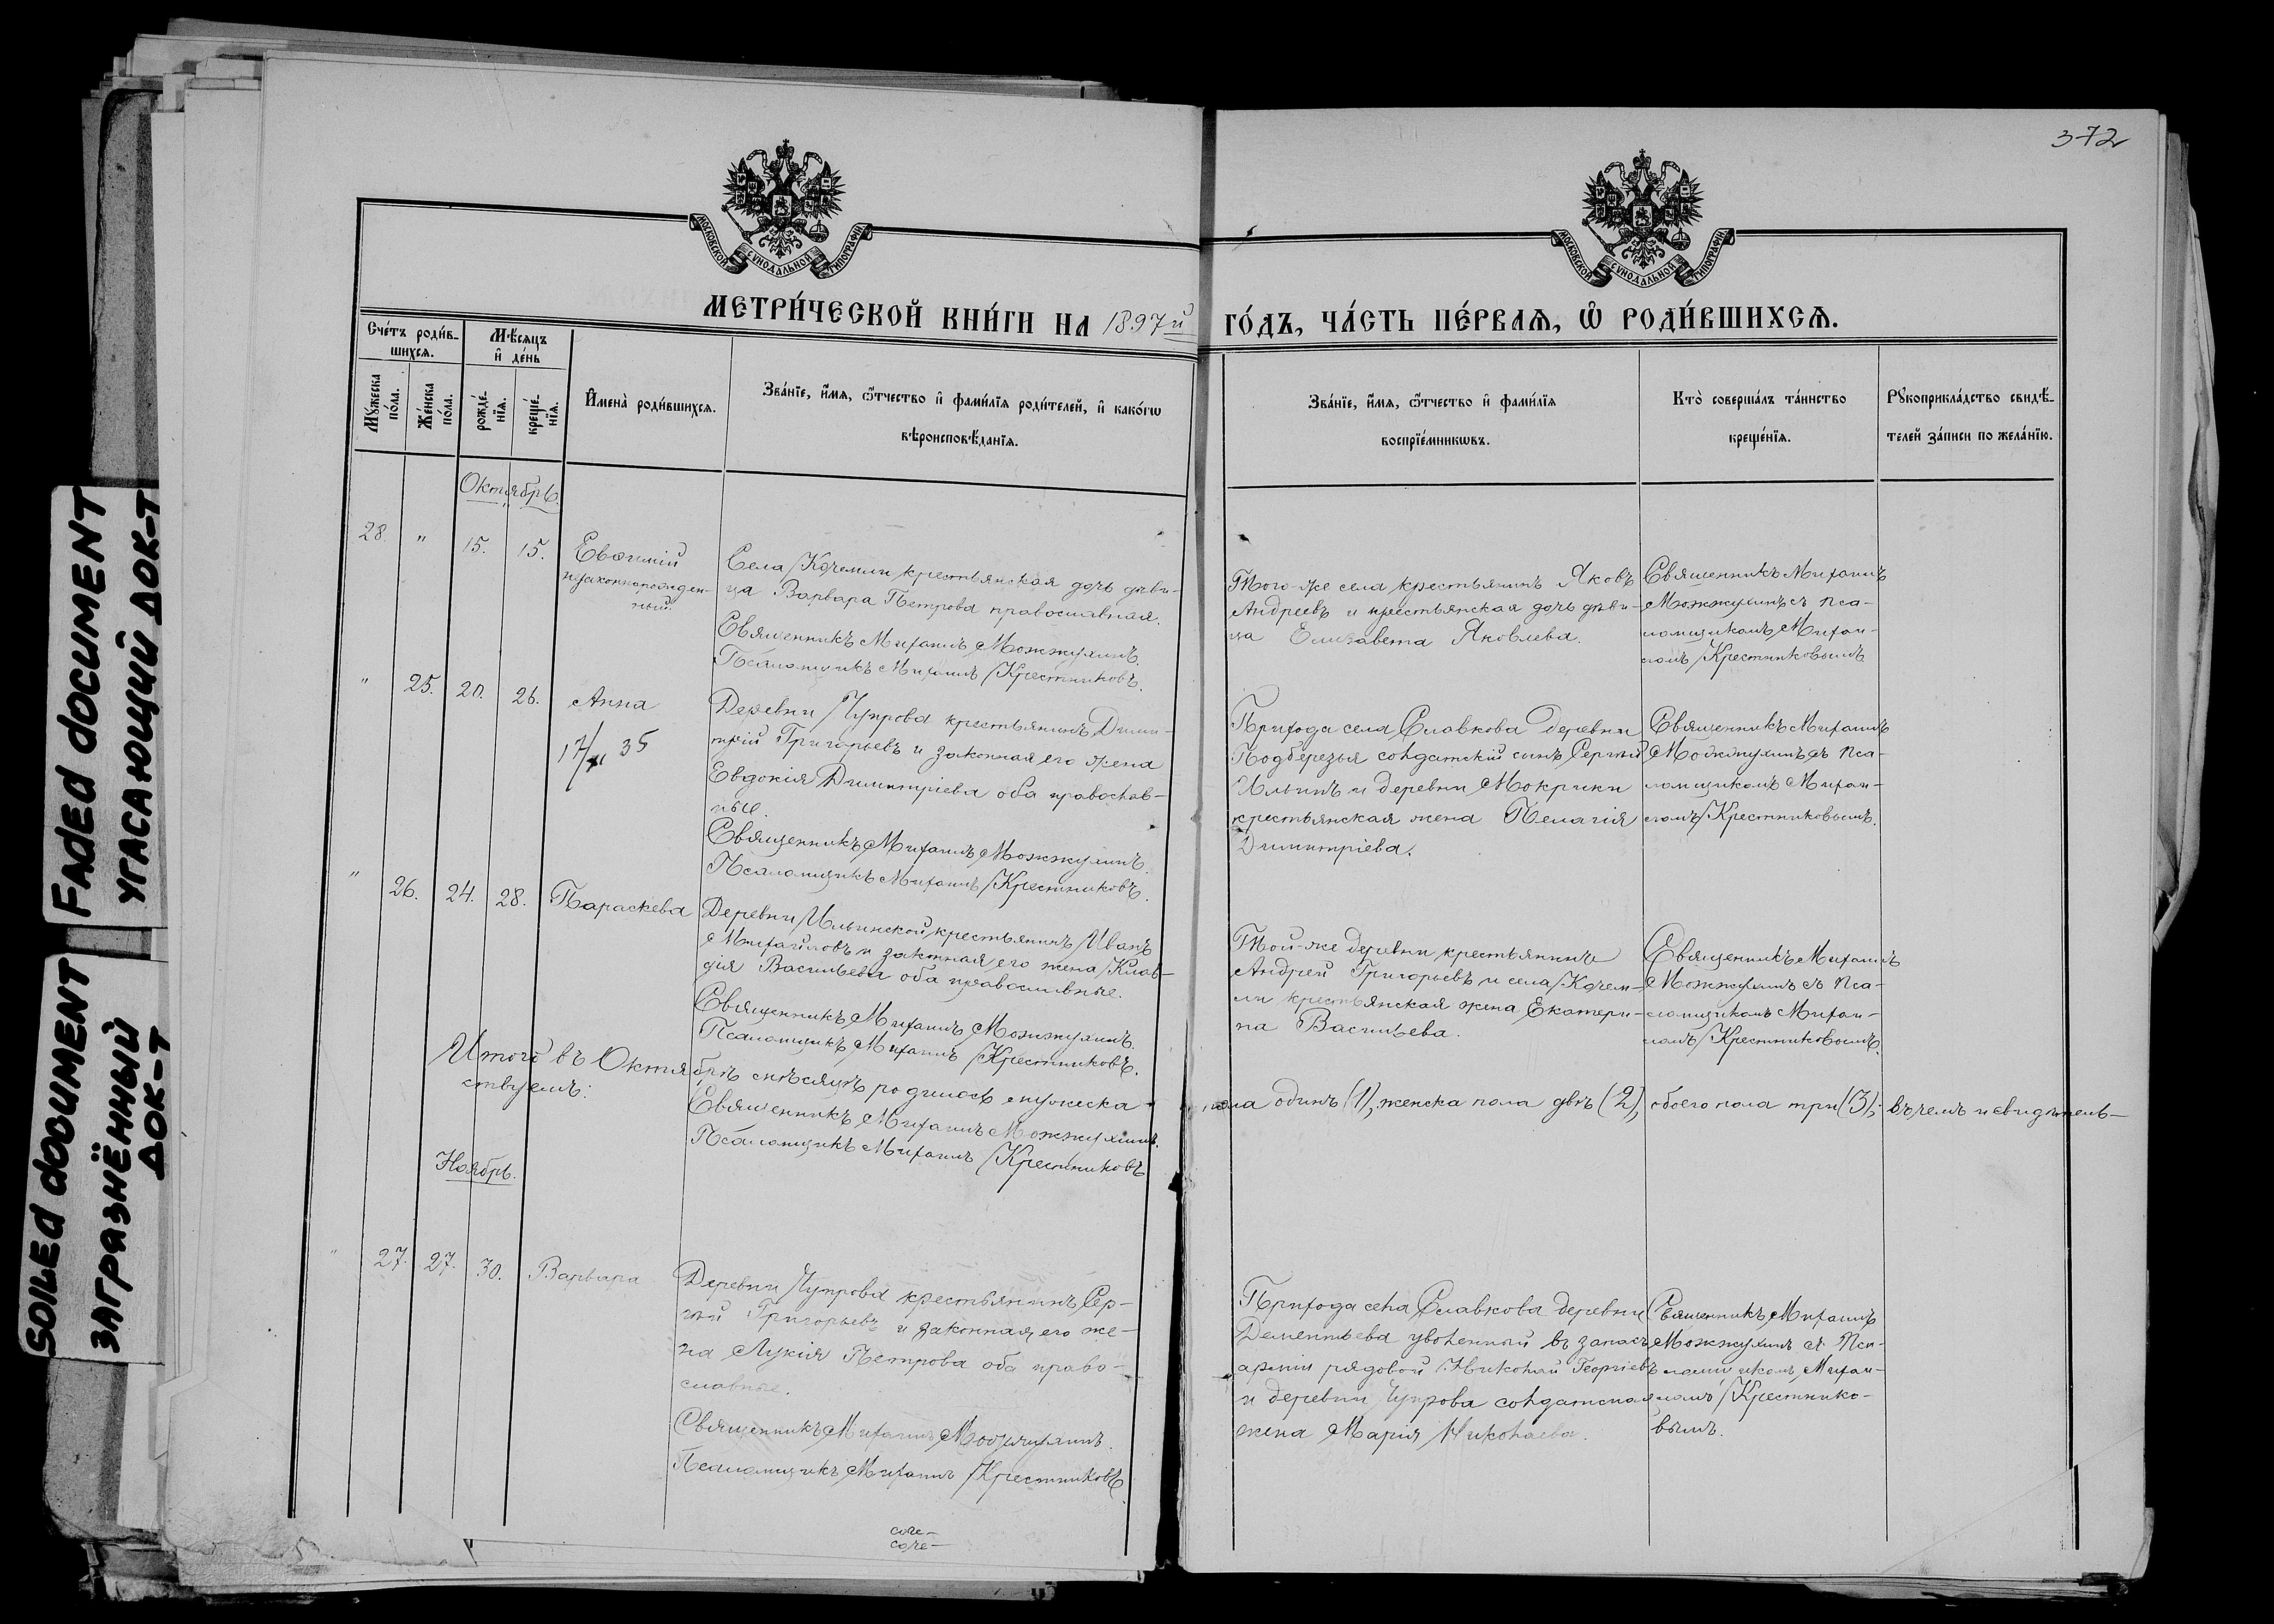 FAdEd dOCUMENT
УГАСАЮЩИЙ ДОК-Т
SOILEd dOCUMENT
ЗАГРЯЗНЁННЫЙ
ДОК-Т
372
МОСКОВСКОЙ СУНОДАЛЬНОЙ ТИПОГРАФІИ
МОСКОВСКОЙ СУНОДАЛЬНОЙ ТИПОГРАФІИ
МЕТРИ́ЧЕСКОЙ КНИ́ГИ НА 1897й ГО́ДЪ, ЧА́СТЬ ПЕ́РВАѦ, Ѡ҆ РОДИ́ВШИХСѦ.
Сче́тъ роди́в-
шихсѧ.
Мѣ́сѧцъ
и҆ де́нь
Мꙋ́жеска
по́ла.
Же́нска
по́ла.
рожде́-
нїѧ.
креще́-
нїѧ.
И҆мена̀ роди́вшихсѧ.
Зва́нїе, и҆́мѧ, ѻ҆́тчество и҆ фами́лїѧ роди́телей, и҆ како́гѡ
вѣроисповѣ́данїѧ.
Зва́нїе, и҆́мѧ, ѻ҆́тчество и҆ фами́лїѧ
воспрїе́мникѡвъ.
Кто̀ соверша́лъ та́инство
креще́нїѧ.
Рꙋкоприкла́дство свидѣ́-
телей за́писи по жела́нїю.
Октябрь.
28. " 15. 15.
Евѳимій
незаконнорожден-
ный.
Села Кочемли крестьянская дочь дѣви-
ца Варвара Петрова православная.
Священникъ Михаилъ Можжухинъ.
Псаломщикъ Михаилъ Крестниковъ.
Того-же села крестьянинъ Яковъ
Андреевъ и крестьянская дочь дѣви-
ца Елисавета Яковлева.
Священникъ Михаилъ
Можжухинъ съ пса-
ломщикомъ Михаи-
ломъ Крестниковымъ
" 25. 20. 26. Анна
17/XI 35
Деревни Чупрова крестьянинъ Дими-
трій Григорьевъ и законная его жена
Евдокія Димитріева оба православ-
ные.
Священникъ Михаилъ Можжухинъ.
Псаломщикъ Михаилъ Крестниковъ.
Прихода села Славкова деревни
Подберезья солдатскій сынъ Сергій
Ильинъ и деревни Мокрики
крестьянская жена Пелагія
Димитріева.
Священникъ Михаилъ
Можжухинъ съ пса-
ломщикомъ Михаи-
ломъ Крестниковымъ.
" 26. 24. 28. Параскева
Деревни Ильинской крестьянинъ Иванъ
Михайловъ и законная его жена Клав-
дія Васильева оба православные.
Священникъ Михаилъ Можжухинъ.
Псаломщикъ Михаилъ Крестниковъ.
Той-же деревни крестьянинъ
Андрей Григорьевъ и села Кочем-
ли крестьянская жена Екатери-
на Васильева.
Священникъ Михаилъ
Можжухинъ съ пса-
ломщикомъ Михаи-
ломъ Крестниковымъ.
Итого въ Октябрѣ мѣсяцѣ родилось мужеска пола одинъ (1), женска пола двѣ (2), обоего пола три (3); въ чемъ и свидѣтель-
ствуемъ:
Священникъ Михаилъ Можжухинъ.
Псаломщикъ Михаилъ Крестниковъ
Ноябрь.
" 27. 27. 30. Варвара
Деревни Чупрова крестьянинъ Сер-
гій Григорьевъ и законная его же-
на Лукія Петрова оба право-
славные.
Священникъ Михаилъ Можжухинъ.
Псаломщикъ Михаилъ Крестниковъ.
Прихода села Славкова деревни
Дементьева уволенный въ запасъ
арміи рядовой Николай Георгіевъ
и деревни Чупрова солдатская
жена Марія Николаева.
Священникъ Михаилъ
Можжухинъ съ пса-
ломщикомъ Михаи-
ломъ Крестнико-
вымъ.